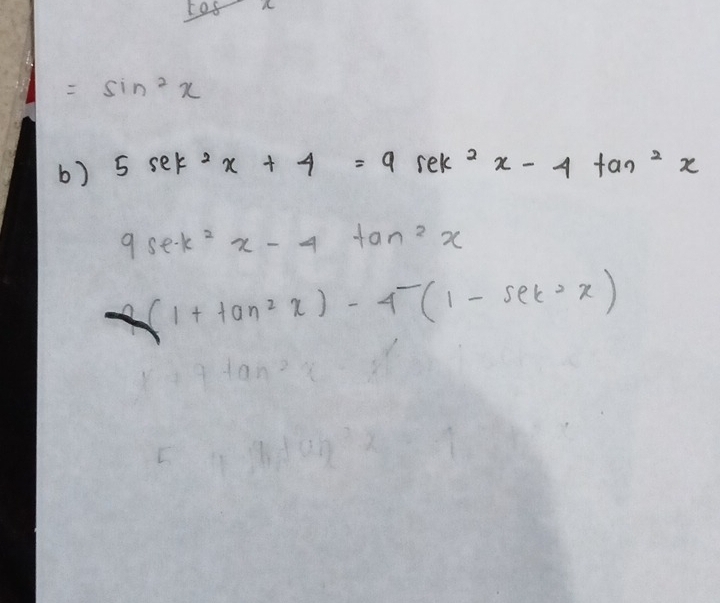 = sin² x
b) 5 sek² x + 4 = 9 sek² x - 4 tan² x
9 sek² x - 4 tan² x
(1 + tan² x) - 4 (1 - sek² x)
9 tan² x